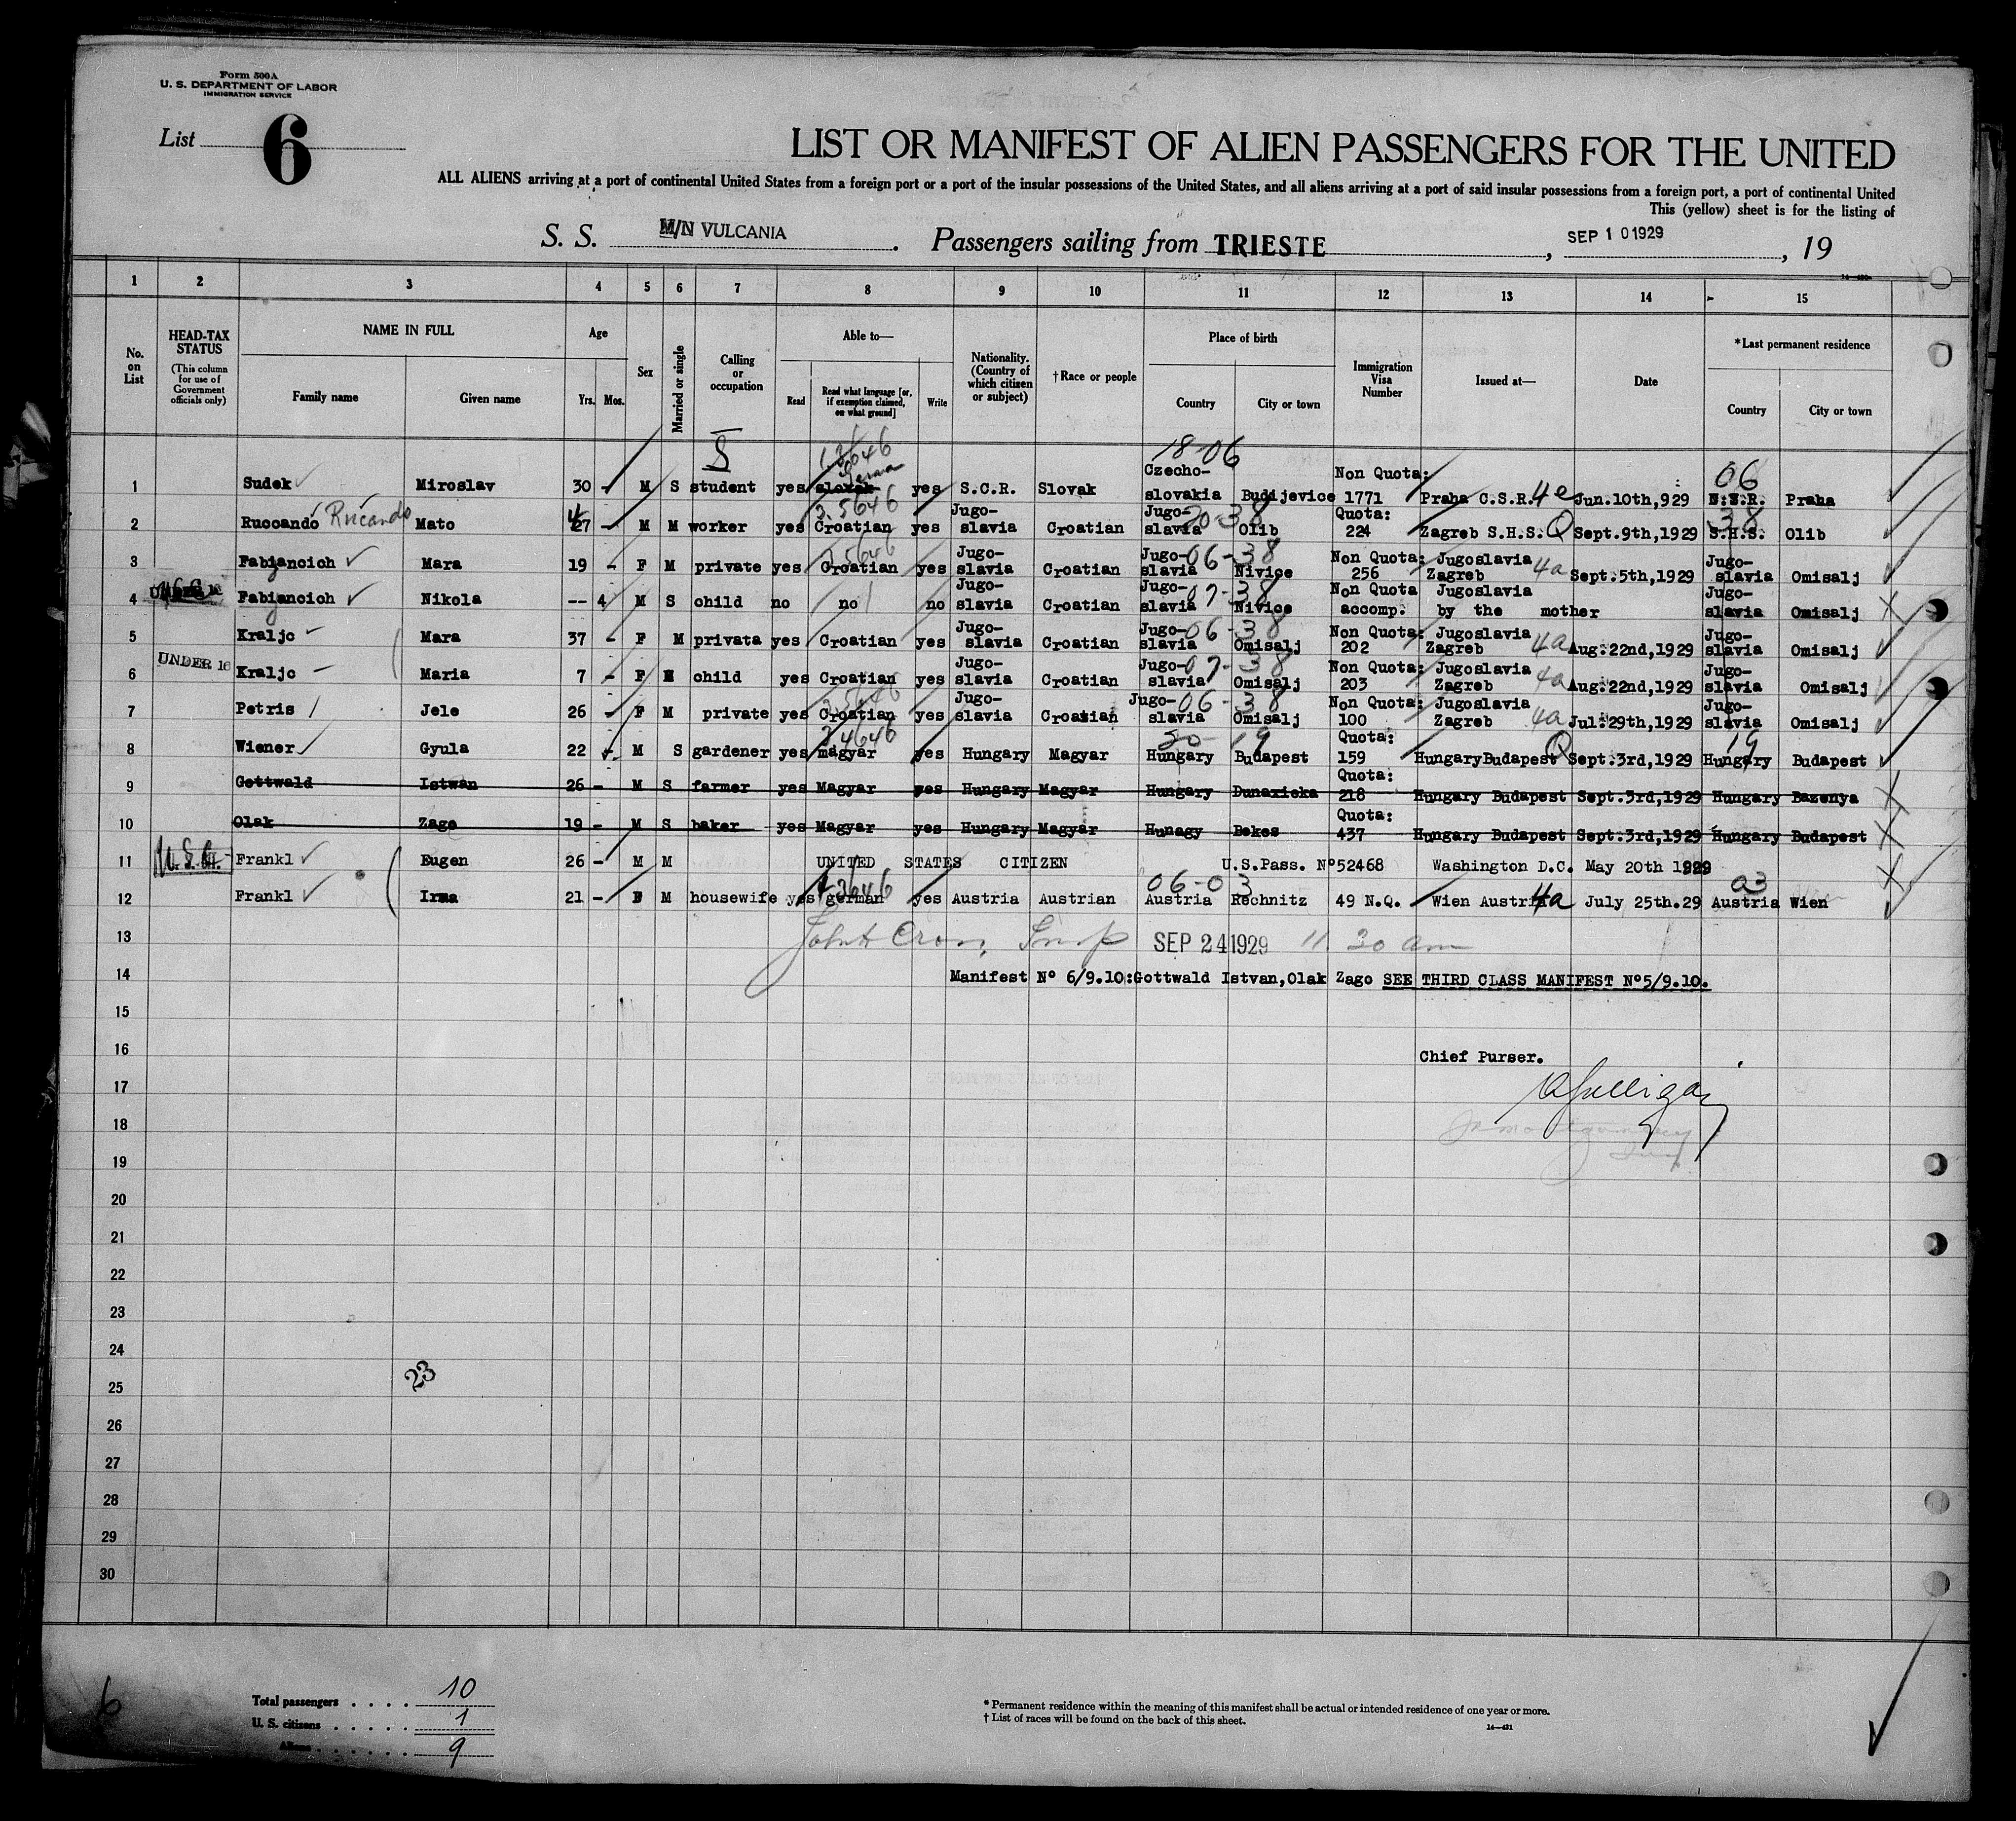 Form 500A
U. S. DEPARTMENT OF LABOR
IMMIGRATION SERVICE
List 6
LIST OR MANIFEST OF ALIEN PASSENGERS FOR THE UNITED
ALL ALIENS arriving at a port of continental United States from a foreign port or a port of the insular possessions of the United States, and all aliens arriving at a port of said insular possessions from a foreign port, a port of continental United
This (yellow) sheet is for the listing of
S. S. M/N VULCANIA . Passengers sailing from TRIESTE , SEP 10 1929 , 19
1 2 3 4 5 6 7 8 9 10 11 12 13 14 15
No. on List
HEAD-TAX STATUS (This column for use of Government officials only)
NAME IN FULL Family name Given name
Age Yrs. Mos.
Sex
Married or single
Calling or occupation
Able to— Read Read what language [or, if exemption claimed, on what ground] Write
Nationality. (Country of which citizen or subject)
†Race or people
Place of birth Country City or town
Immigration Visa Number
Issued at—
Date
*Last permanent residence Country City or town
1 Sudek Miroslav 30 - M S student yes slovak yes S.C.R. Slovak Czecho-slovakia Budijevice Non Quota: 1771 Praha C.S.R. 4e Jun.10th,929 Praha
18-06 06
2 Ruccando Rucando Mato 27 - M M worker yes Croatian yes Jugo-slavia Croatian Jugo-slavia Olib Quota: 224 Zagreb S.H.S. Q Sept.9th,1929 S.H.S. Olib
20-38 38
3 Fabjancich Mara 19 - F M private yes Croatian yes Jugo-slavia Croatian Jugo-slavia Nivice Non Quota: 256 Jugoslavia Zagreb 4a Sept.5th,1929 Jugo-slavia Omisalj
06-38
4 Fabjancich Nikola -- 4 M S child no no no Jugo-slavia Croatian Jugo-slavia Nivice Non Quota accomp. Jugoslavia by the mother Jugo-slavia Omisalj
07-38
5 Kraljc Mara 37 - F M privata yes Croatian yes Jugo-slavia Croatian Jugo-slavia Omisalj Non Quota: 202 Jugoslavia Zagreb 4a Aug.22nd,1929 Jugo-slavia Omisalj
06-38
UNDER 16
6 Kraljc Maria 7 - F child yes Croatian yes Jugo-slavia Croatian Jugo-slavia Omisalj Non Quota: 203 Jugoslavia Zagreb 4a Aug.22nd,1929 Jugo-slavia Omisalj
07-38
7 Petris Jele 26 - F M private yes Croatian yes Jugo-slavia Croatian Jugo-slavia Omisalj Non Quota: 100 Jugoslavia Zagreb 4a Jul.29th,1929 Jugo-slavia Omisalj
06-38
8 Wiener Gyula 22 - M S gardener yes magyar yes Hungary Magyar Hungary Budapest Quota: 159 HungaryBudapest Q Sept.3rd,1929 Hungary Budapest
20 19 19
9 Gottwald Istwan 26 - M S farmer yes Magyar yes Hungary Magyar Hungary Quota: 218 Hungary Budapest Sept.3rd,1929 Hungary Bazenya
10 Olak Zago 19 - M S baker yes Magyar yes Hungary Magyar Hunagy Bekes Quota: 437 Hungary Budapest Sept.3rd,1929 Hungary Budapest
11 Frankl Eugen 26 - M M UNITED STATES CITIZEN U.S.Pass. N°52468 Washington D.C. May 20th 1929
12 Frankl Irma 21 - F M housewife yes german yes Austria Austrian Austria Rechnitz 49 N.Q. Wien Austria 4a July 25th.29 Austria Wien
06-03 03
13 SEP 24 1929 11 30 am
14 Manifest N° 6/9.10:Gottwald Istvan,Olak Zago SEE THIRD CLASS MANIFEST N°5/9.10.
15
16 Chief Purser.
17
18
19
20
21
22
23
24
23
25
26
27
28
29
30
6
Total passengers . . . . 10
U. S. citizens . . . . . 1
Aliens . . . . . . 9
* Permanent residence within the meaning of this manifest shall be actual or intended residence of one year or more.
† List of races will be found on the back of this sheet.
14—421